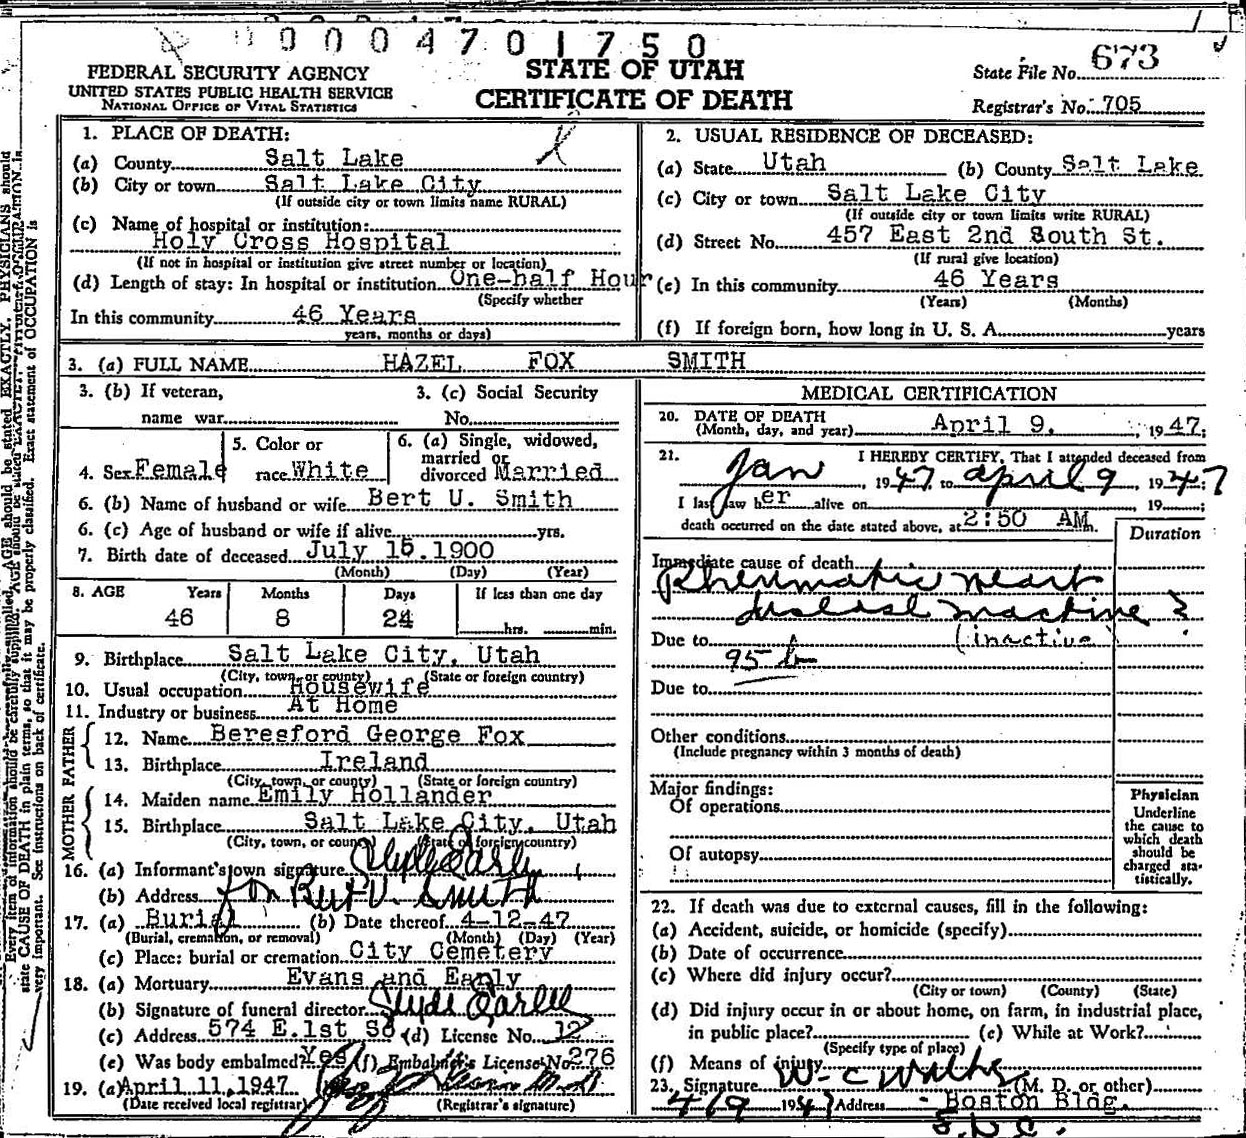 0 0 0 4 7 0 1 7 5 0
FEDERAL SECURITY AGENCY
UNITED STATES PUBLIC HEALTH SERVICE
NATIONAL OFFICE OF VITAL STATISTICS
STATE OF UTAH
CERTIFICATE OF DEATH
State File No. 673
Registrar's No. 705
1. PLACE OF DEATH:
(a) County Salt Lake
(b) City or town Salt Lake City
(If outside city or town limits name RURAL)
(c) Name of hospital or institution:
Holy Cross Hospital
(If not in hospital or institution give street number or location)
(d) Length of stay: In hospital or institution One-half Hour
(Specify whether
In this community 46 Years
years, months or days)
2. USUAL RESIDENCE OF DECEASED:
(a) State Utah (b) County Salt Lake
(c) City or town Salt Lake City
(If outside city or town limits write RURAL)
(d) Street No. 457 East 2nd South St.
(If rural give location)
(e) In this community 46 Years
(Years) (Months)
(f) If foreign born, how long in U. S. A. years
3. (a) FULL NAME HAZEL FOX SMITH
3. (b) If veteran,
name war
3. (c) Social Security
No.
4. Sex Female
5. Color or
race White
6. (a) Single, widowed,
married or
divorced Married
6. (b) Name of husband or wife Bert U. Smith
6. (c) Age of husband or wife if alive yrs.
7. Birth date of deceased July 15, 1900
(Month) (Day) (Year)
8. AGE Years Months Days If less than one day
46 8 24 hrs. min.
9. Birthplace Salt Lake City, Utah
(City, town, or county) (State or foreign country)
10. Usual occupation Housewife
11. Industry or business At Home
FATHER
12. Name Beresford George Fox
13. Birthplace Ireland
(City, town, or county) (State or foreign country)
MOTHER
14. Maiden name Emily Hollander
15. Birthplace Salt Lake City, Utah
(City, town, or county) (State or foreign country)
16. (a) Informant's own signature Clyde Early
(b) Address for Bert U. Smith
17. (a) Burial (b) Date thereof 4-12-47
(Burial, cremation, or removal) (Month) (Day) (Year)
(c) Place: burial or cremation City Cemetery
18. (a) Mortuary Evans and Early
(b) Signature of funeral director Clyde Early
(c) Address 574 E.1st So (d) License No. 12
(e) Was body embalmed? Yes (f) Embalmer's License No. 276
19. (a) April 11, 1947
(Date received local registrar) (Registrar's signature)
MEDICAL CERTIFICATION
20. DATE OF DEATH
(Month, day, and year) April 9, 1947;
21. I HEREBY CERTIFY, That I attended deceased from
Jan, 1947, to april 9, 1947;
I last saw her alive on , 19 ;
death occurred on the date stated above, at 2:50 AM.
Duration
Immediate cause of death
Rheumatic heart
disease
(inactive)
Due to
95 b
Due to
Other conditions
(Include pregnancy within 3 months of death)
Major findings:
Of operations
Of autopsy
Physician
Underline
the cause to
which death
should be
charged sta-
tistically.
22. If death was due to external causes, fill in the following:
(a) Accident, suicide, or homicide (specify)
(b) Date of occurrence
(c) Where did injury occur?
(City or town) (County) (State)
(d) Did injury occur in or about home, on farm, in industrial place,
in public place? (e) While at Work?
(Specify type of place)
(f) Means of injury
23. Signature (M. D. or other)
4/9 1947 Address Boston Bldg.
S.L.C.